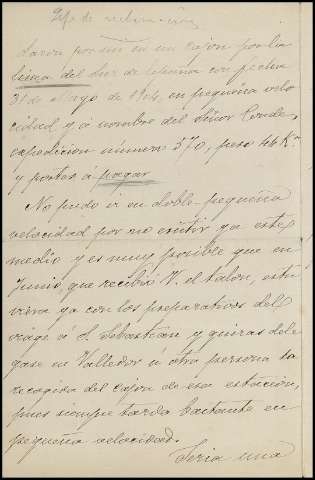 Jefe de reclamación
Salió por mi en un cajon por la
linea del Sur de España con fecha
31 de Mayo de 1914, en pequeña velo
cidad y á nombre del Señor Conde,
expedicion número 370, peso 46 K.os
y portes á pagar
No pudo ir en doble pequeña
velocidad por no existir ya este
medio y es muy posible que en
Junio, que recibió V. el talón, estu
viera ya con los preparativos del
viage á S. Sebastian y quizas dele
gase en Valledor ú otra persona la
recogida del cajon de esa estación,
pues siempre tarda bastante en
pequeña velocidad.
Seria una